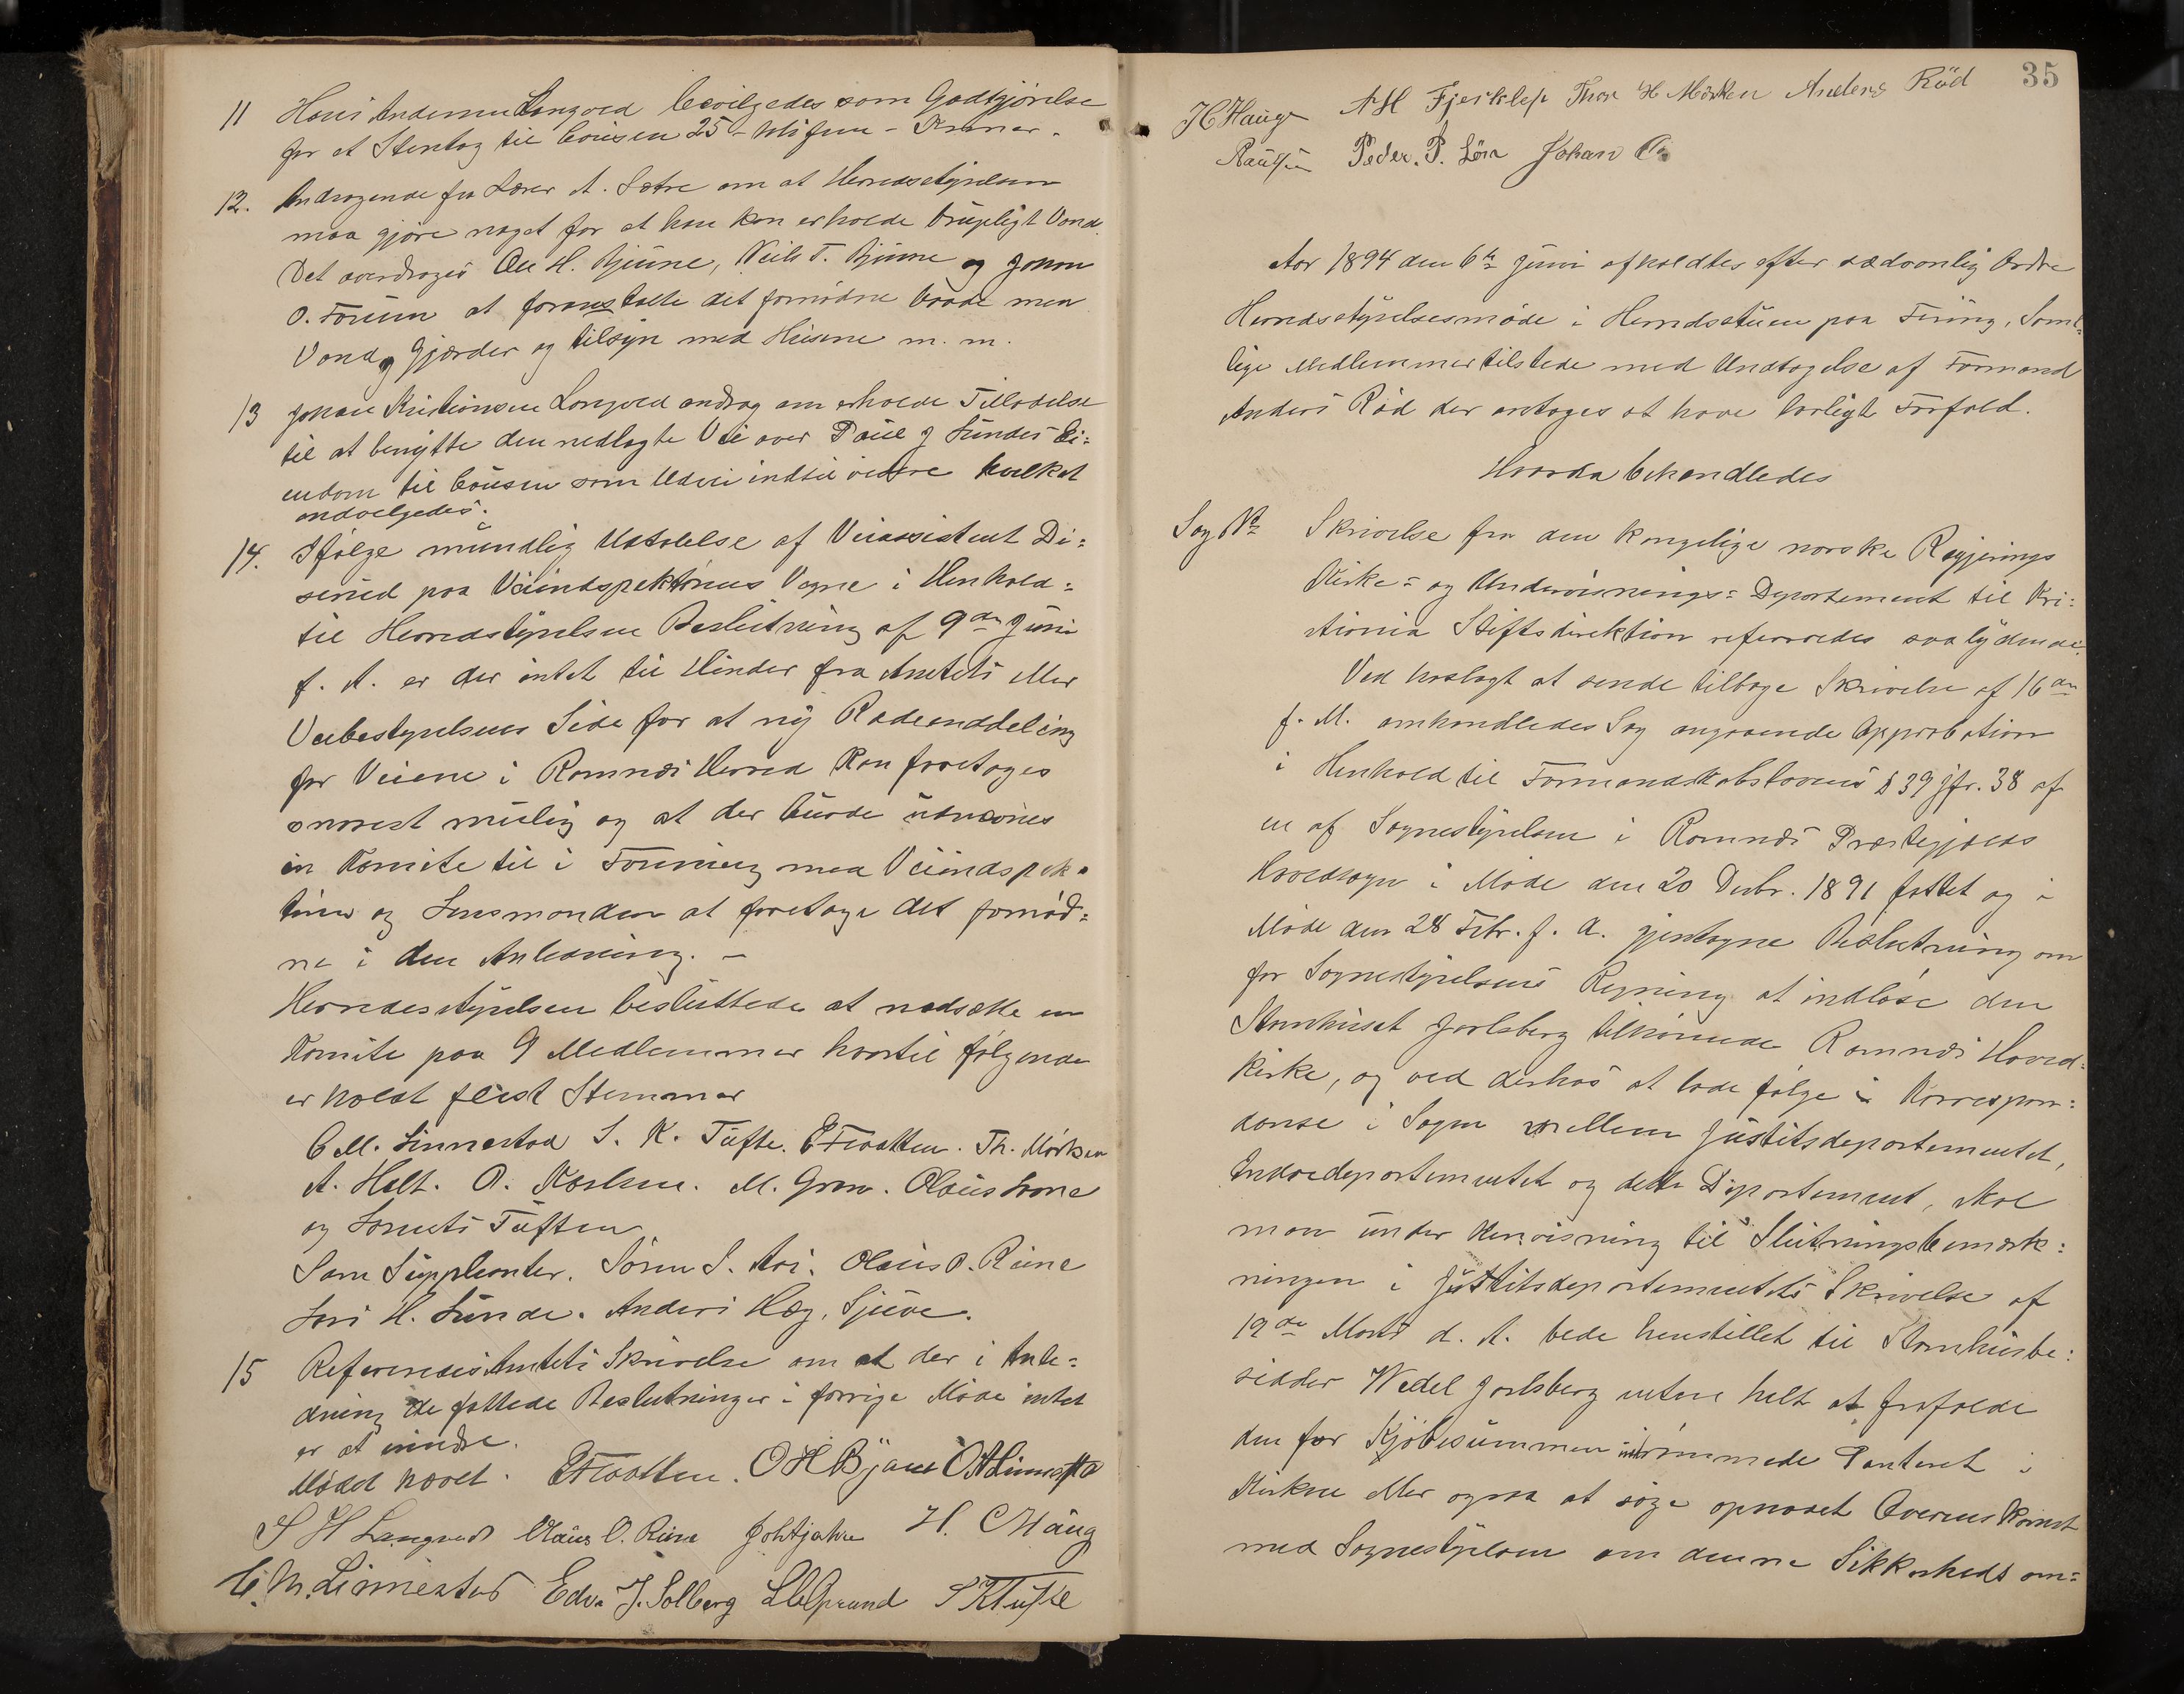 11 Hans Andersen Langved bevilgedes som Godtgjörelse
for et Stentag til Cousen 25 – Kroner –
12. Andragende fra Lærer A. Sætre om at Herredsstyrelsen
maa gjöre noget for at han kan erholde brugeligt Vand.
Det overdroges Ole H. Bjünne, Niels T. Bjünne og Johan
O. Forüm at foranstalte det fornödne baade med
Vand, Gjærder og tilsyn med Husene m. m.
13 Johan Kristiansen Langved androg om erholde Tilladelse
til at benytte den nedlagte Vei over Paul J Sundes Ei=
endom til Cousen som Udvei indtil videre hvilket
indvilgedes.
14. Ifölge mundlig Udtalelse af Veiassistent Di=
serud paa Veiinspektörens Vegne i Henhold=
til Herredstyrelsens Beslutning af 9de Juni
f. A. er der intet til Hinder fra Amtets eller
Veibestyrelsens Side for at ny Rodeinddeling
for Veiene i Ramnæs Herred kan foretages
snarest mulig og at der burde udnævnes
en Komite til i Forening med Veiindspek=
tören og Lensmanden at foretage det fornöd=
ne i den Anledning. –
Herredesstyrelsen besluttede at nedsætte en
Komite paa 9 Medlemmer hvortil fölgende
erholdt flest Stemmer
C M. Linnestad S. K. Tufte. E Fraatten. Th. Mörken
A. Holt. O. Karlsen. M. Gran. Olaus
og Tuften
Som Suppleanter. Sören S. Olaus O. Rüne
Lars H. Sunde. Anders Hæg, Sjüve.
15 Refereredes Amtets Skrivelse om at der i Anle=
dning de fattede Beslutninger i forrige Möde intet
er at erindre.
Mödet hævet. E Fraatten. O H Bjüne C A Linnesta
S H Langved Olaus O. Rüne H. C Haug
C. M. Linnestad Edv. J. Solberg S K Tufte
35
H Haug A H Fjerklep Thor H Mörken Anders Röd
Paulsen Peder. P. Johan O.
Aar 1894 den 6te Juni afholdtes efter sædvanlig Ordre
Herredsstyrelsesmöde i Herredsstuen paa Firing. Samt=
lige Medlemmer tilstede med Undtagelse af Formand
Anders Röd der antages at have lovligt Forfald.
Hvorda behandledes
Sag No Skrivelse fra den kongelige norske Regjerings
Kirke= og Undervisnings= Departement til Kri=
stiania Stiftsdirektion refereredes saalydende:
Ved hoslagt at sende tilbage Skrivelse af 16de
f. M. omhandledes Sag angaaende Approbation
i Henhold til Formandskabslovens § 39 jfr. 38 af
en af Sognestyrelsen i Ramnæs Præstegjælds
Hovedsogn i Möde den 20 Decbr. 1891 fattet og i
Möde den 28 Febr. f. A. gjentagne Beslutning om
for Sognestyrelsens Regning at indlöse den
Stamhuset Jarlsberg tilhörende Ramnæs Hoved=
kirke, og ved derhos at lade fölge en Korrespon=
danse i Sagen mellem Justitsdepartementet,
Indredepartementet og dette Departement, skal
man under Henvisning til Slutningsbemærk=
ningen i Justitsdepartementets Skrivelse af
19de Marts d. A. bede henstillet til Stamhusbe=
sidder Wedel Jarlsberg enten helt at frafalde
den for Kjöbesummen indrömmede Panteret i
Kirken eller ogsaa at söge opnaaet Overenskomst
med Sognestyrelsen om denne Sikkerheds om=